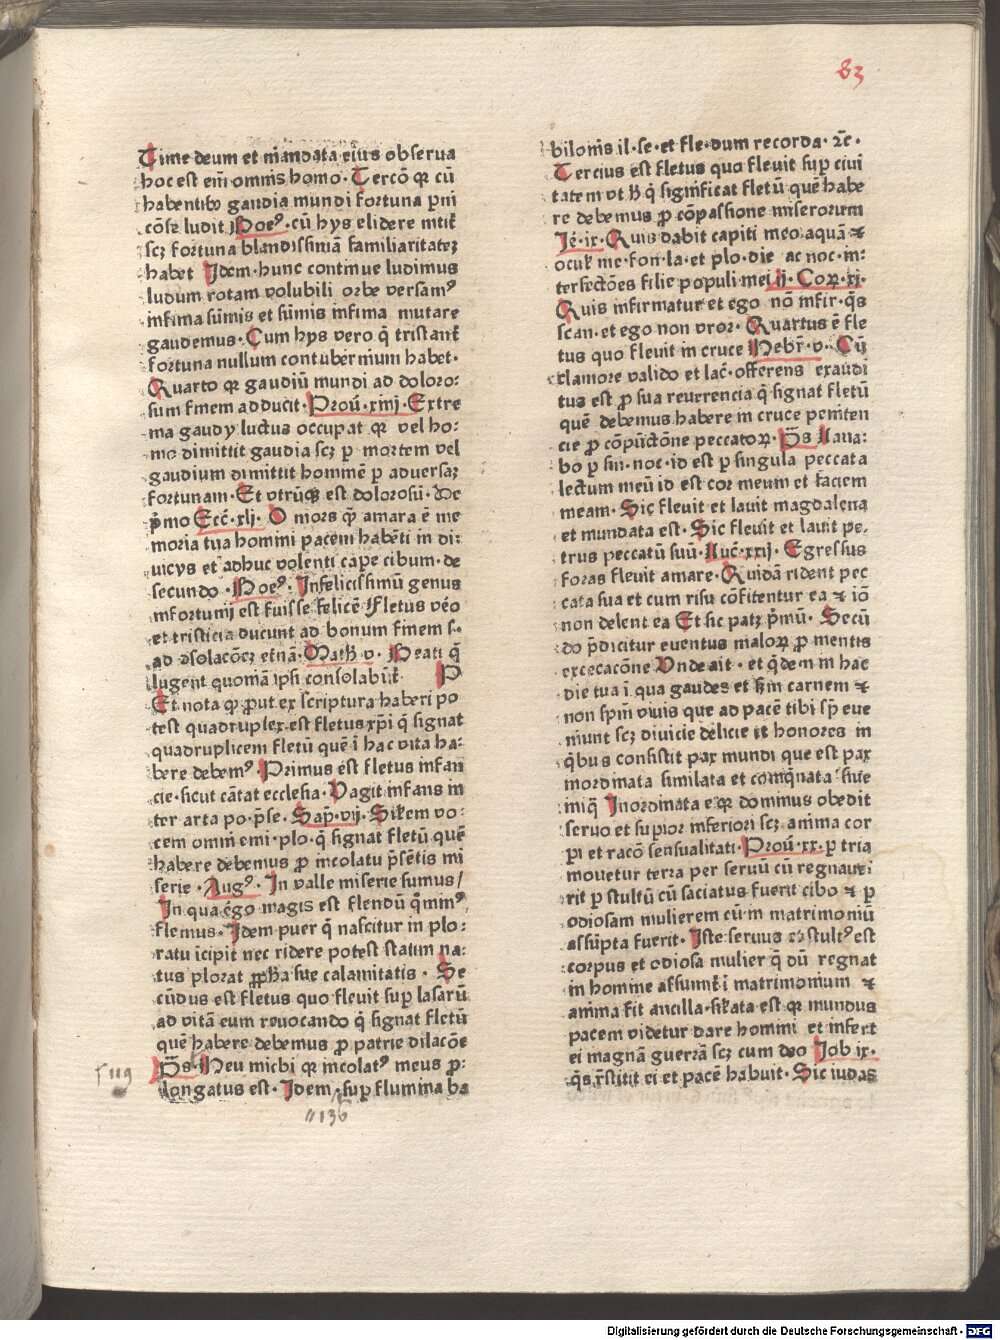 83
Time deum et mandata eius obserua
hoc est em̄ omnis homo. Tercō qꝛ cū
habentibꝰ gaudia mundi fortuna ꝑni
cōse ludit Boeꝰ. cū hys elidere
scꝫ fortuna blandissimā familiaritateꝫ
habet Idem. hunc continue ludimus
ludum rotam volubili orbe versamꝰ
infima sūmis et sūmis infima mutare
gaudemus. Cum hys vero q̄ tristant̄
fortuna nullum contubernium habet.
Quarto qꝛ gaudiū mundi ad doloro:
sum finem adducit. Prou̅. xiiij. Extre
ma gaudy luctus occupat qꝛ vel ho:
mo dimittit gaudia scꝫ ꝑ mortem vel
gaudium dimittit hominē ꝑ aduersaꝫ
fortunam. Et vtrūqꝫ est dolorosū. De
p̄mo Ecc̄. xlj. O mors q̄ amara ē me
moria tua homini pacem habēti in di:
uicys et adhuc volenti capere cibum. de
secundo. Boeꝰ. Infelicissimū genus
infortunij est fuisse felicē Fletus vēo
et tristicia ducunt ad bonum finem s.
ad ꝯsolacōeꝫ et̄nā. Math̄ v. Beati q̄
lugent quoniā ipsi consolabūt̄. P
Et nota ꝙ ꝓut ex scriptura haberi po
test quadruplex est fletus xp̄i q̄ signat
quadruplicem fletū quē ī hac vita ha:
bere debemꝰ. Primus est fletus infan
cie. sicut cātat ecclesia. Vagit infans in
ter arta po. p̄se. Sap̄. vij. Sikem vo:
cem omnī emi. plo. q̄ signat fletū quē
habere debemus ꝓ incolatu p̄sētis mi
serie. Augꝰ. In valle miserie sumus/
In qua ēgo magis est flendū q̄
flemus. Idem puer q̄ nascitur in plo:
ratu īcipit nec ridere potest statim na:
tus plorat ꝓph̄a sue calamitatis. Se
cūdus est fletus quo fleuit suꝑ lasarū
ad vitā eum reuocando q̄ signat fletū
quē habere debemus ꝓ patrie dilacōe
p̄s. Heu michi qꝛ incolatꝰ meus ꝓ:
longatus est. Idem. suꝑ flumina ba
119
136
bilonis il. se. et fle. dum recorda. ⁊c̄.
Tercius est fletus quo fleuit suꝑ ciui
tatem vt h̄ q̄ significat fletū quē habe
re debemus ꝓ cōpassione miserorum
Ie̅. ix. Quis dabit capiti meo aquā ⁊
ocuł me. fon. la. et plo. die ac noc. in:
terfectōes filie populi mei ij. Coꝝ. xi.
Quis infirmatur et ego nō infir. q̄s
scan. et ego non vror. Quartus ē fle
tus quo fleuit in cruce Hebr̄. v. Cū
clamore valido et lac̄. offerens exaudi
tus est ꝓ sua reuerencia q̄ signat fletū
quē debemus habere in cruce peniten
cie ꝓ cōpūctōne peccatoꝝ. p̄s Laua:
bo ꝑ sin. noc. id est ꝑ singula peccata
lectum meū id est cor meum et faciem
meam. Sic fleuit et lauit magdalena
et mundata est. Sic fleuit et lauit pe.
trus peccatū suū. Luc̄. xxij. Egressus
foras fleuit amare. Quidā rident pec
cata sua et cum risu cōfitentur ea ⁊ iō
non delent ea Et sic patꝫ p̄mū. Secū
do p̄dicitur euentus maloꝝ ꝓ mentis
excecacōne Vnde ait. et q̄dem in hac
die tua ī qua gaudes et scd̄m carnem ⁊
non spm̄ viuis que ad pacē tibi sꝑ eue
niunt scꝫ diuicie delicie et honores in
q̄bus consistit pax mundi que est pax
inordinata similata et comq̄nata siue
iniq̄ Inordinata e. qꝛ dominus obedit
seruo et supior inferiori scꝫ anima cor
pi et racō sensualitati. Prou̅. xx. ꝑ tria
mouetur terra per seruū cū regnaue:
rit ꝑ stultū cū saciatus fuerit cibo ⁊ ꝑ
odiosam mulierem cū in matrimoniū
assūpta fuerit. Iste seruus ⁊ stultꝰ est
corpus et odiosa mulier q̄ dū regnat
in homine assumit̄ ī matrimonium ⁊
anima fit ancilla. fikata est qꝛ mundus
pacem videtur dare homini et infert
ei magnā guerrā scꝫ cum deo Job ix.
q̄s r̄stitit ei et pacē habuit. Sic iudas
Digitalisierung gefördert durch die Deutsche Forschungsgemeinschaft - DFG